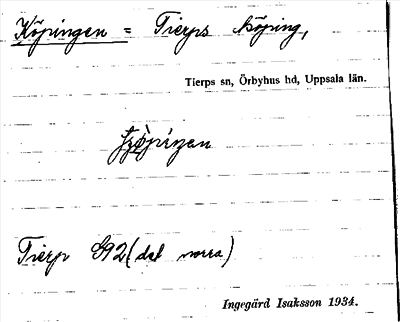 Köpingen = Tierps köping,
Tierps sn, Örbyhus hd, Uppsala län.
Tierp 592 (det norra)
Ingegärd Isaksson 1934.